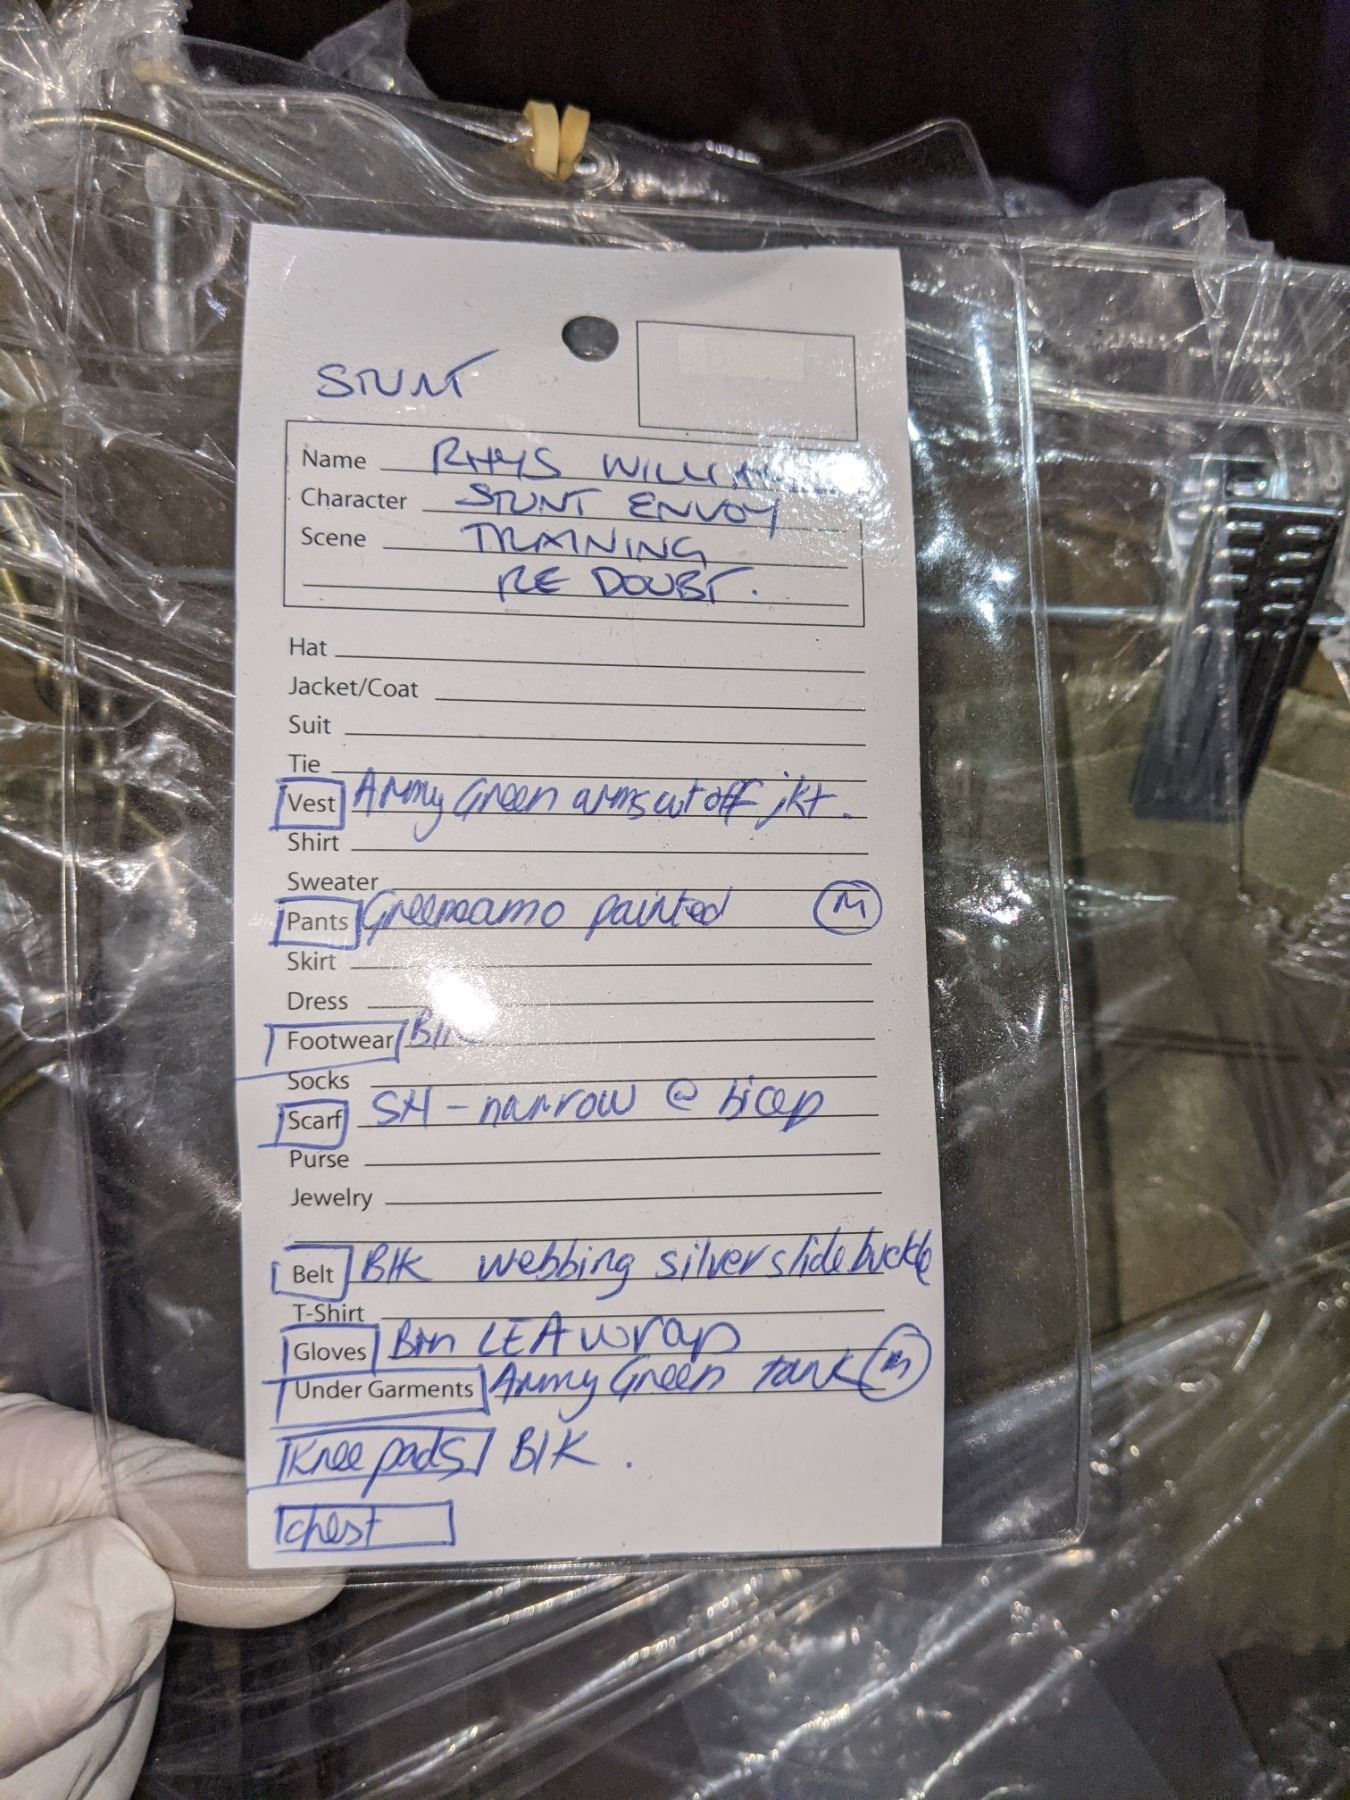 STUNT
Name RHYS
Character STUNT ENVOY
Scene TRAINING
REDOUBT.
Hat
Jacket/Coat
Suit
Tie
Vest Army Green arms cut off jkt.
Shirt
Sweater
Pants Greencamo painted M
Skirt
Dress
Footwear
Socks
Scarf SH - narrow @ bicep
Purse
Jewelry
Belt Blk webbing silver slide buckle
T-Shirt
Gloves Brn LEA wrap
Under Garments Army Green tank M
Knee pads Blk.
chest